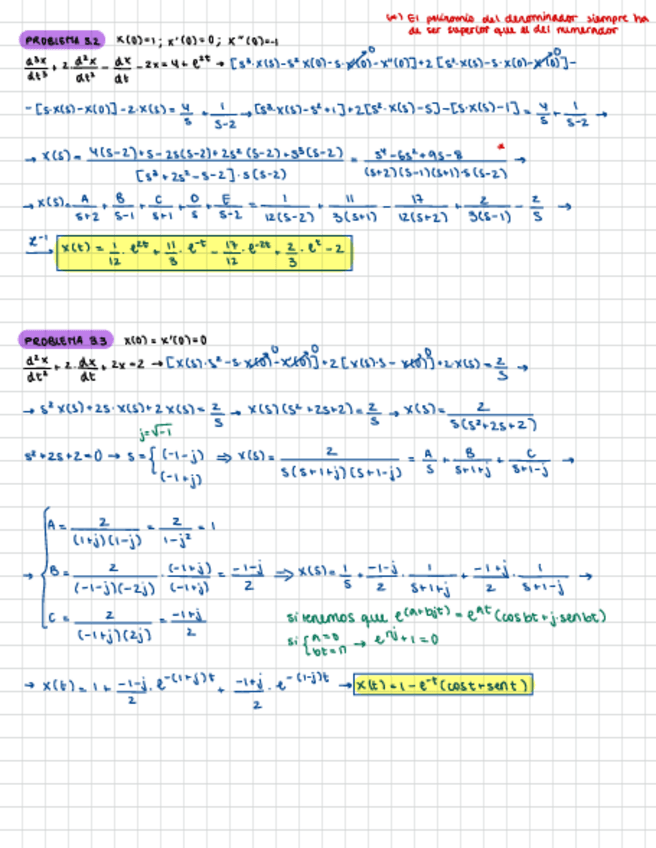 (*) El polinomio del denominador siempre ha
de ser superior que el del numerador
PROBLEMA 3.2 x(0)=1; x'(0)=0; x''(0)=-1
d³x/dt³ + 2·d²x/dt² - dx/dt - 2x = 4 + e^(2t) → [s³·X(s)-s²·X(0)-s·x'(0)-x''(0)]+2[s²·X(s)-s·X(0)-x'(0)]-
-[s·X(s)-X(0)]-2·X(s) = 4/s + 1/(s-2) → [s³·X(s)-s²+1]+2[s²·X(s)-s]-[s·X(s)-1] = 4/s + 1/(s-2) →
→ X(s) = (4(s-2)+s-2s(s-2)+2s²(s-2)+s³(s-2))/([s³+2s²-s-2]·s(s-2)) = (s⁴-6s²+9s-8)/((s+2)(s-1)(s+1)·s(s-2)) * →
→ X(s) = A/(s+2) + B/(s-1) + C/(s+1) + D/s + E/(s-2) = 1/(12(s-2)) + 11/(3(s+1)) - 17/(12(s+2)) + 2/(3(s-1)) - 2/s →
ℒ⁻¹→ x(t) = 1/12·e^(2t) + 11/3·e^(-t) - 17/12·e^(-2t) + 2/3·e^t - 2
PROBLEMA 3.3 x(0)=x'(0)=0
d²x/dt² + 2·dx/dt + 2x = 2 → [X(s)·s²-s·x(0)-x'(0)]+2[X(s)·s-x(0)]+2X(s) = 2/s →
→ s²X(s)+2s·X(s)+2X(s) = 2/s → X(s)(s²+2s+2) = 2/s → X(s) = 2/(s(s²+2s+2))
j=√-1
s²+2s+2=0 → s = { (-1-j) (-1+j) ⇒ X(s) = 2/(s(s+1+j)(s+1-j)) = A/s + B/(s+1+j) + C/(s+1-j) →
A = 2/((1+j)(1-j)) = 2/(1-j²) = 1
→ B = 2/((-1-j)(-2j))·(-1+j)/(-1+j) = (-1-j)/2 ⇒ X(s) = 1/s + (-1-j)/2·1/(s+1+j) + (-1+j)/2·1/(s+1-j) →
C = 2/((-1+j)(2j)) = (-1+j)/2
si tenemos que e^(a+bj)t = e^(at)(cosbt+j·senbt)
si { a=0 bt=π → e^(πj)+1=0
→ x(t) = 1 + (-1-j)/2·e^(-(1+j)t) + (-1+j)/2·e^(-(1-j)t) → x(t) = 1-e^(-t)(cost+sent)